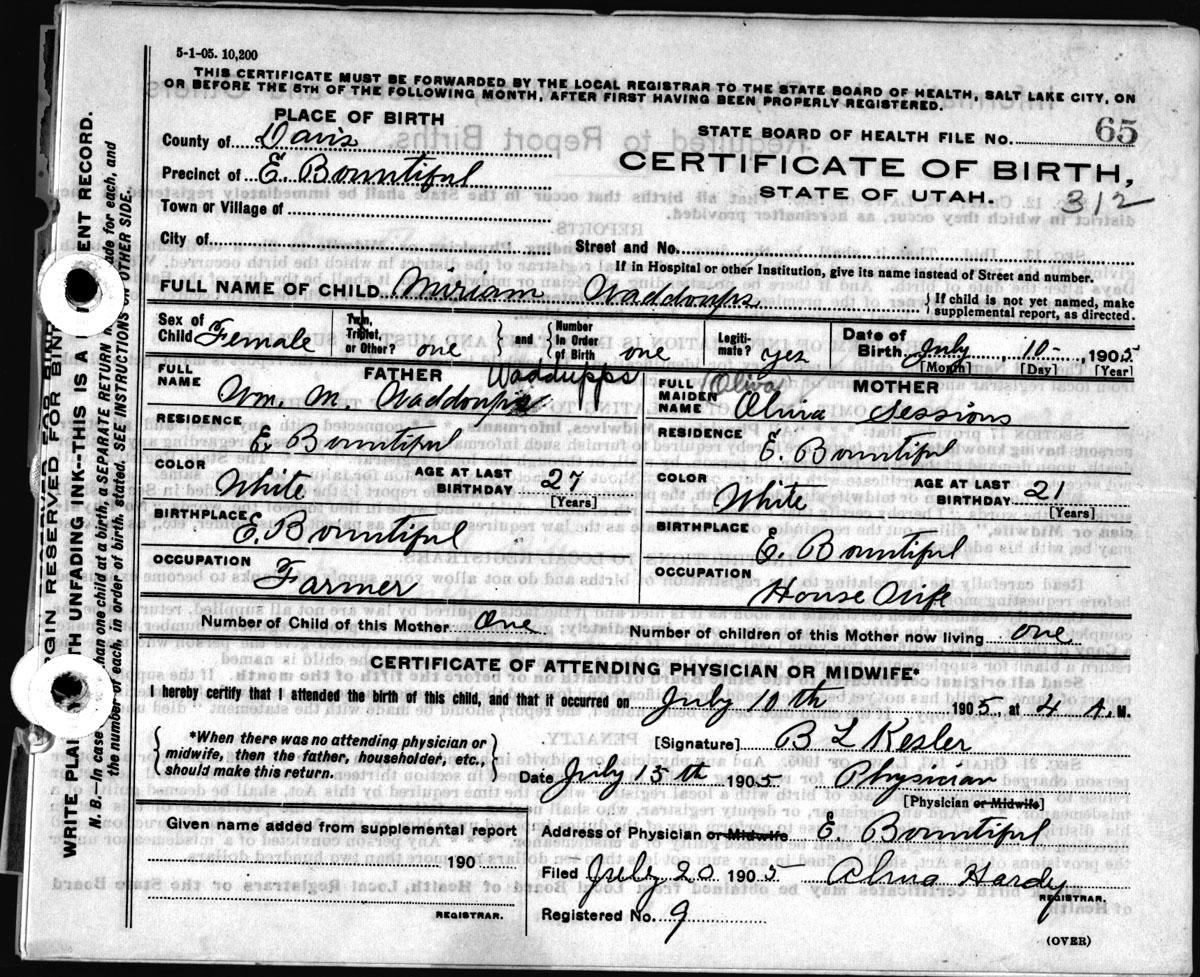 5-1-05. 10,200
THIS CERTIFICATE MUST BE FORWARDED BY THE LOCAL REGISTRAR TO THE STATE BOARD OF HEALTH, SALT LAKE CITY, ON
OR BEFORE THE 5TH OF THE FOLLOWING MONTH, AFTER FIRST HAVING BEEN PROPERLY REGISTERED.
PLACE OF BIRTH
County of Davis
Precinct of E. Bountiful
Town or Village of
City of
STATE BOARD OF HEALTH FILE No. 65
CERTIFICATE OF BIRTH,
STATE OF UTAH.
312
Street and No.
If in Hospital or other Institution, give its name instead of Street and number.
FULL NAME OF CHILD Miriam Waddoups
{ If child is not yet named, make
supplemental report, as directed.
Sex of Child Female
Twin, Triplet, or Other? one
and { Number In Order of Birth one
Legitimate? yes
Date of Birth July 10 1905
[Month] [Day] [Year]
FULL NAME
FATHER Waddupps
Wm. M. Waddoups
RESIDENCE
E Bountiful
COLOR White
AGE AT LAST BIRTHDAY 27
[Years]
BIRTHPLACE E. Bountiful
OCCUPATION
Farmer
FULL MAIDEN NAME
Oliva MOTHER
Olivia Sessions
RESIDENCE
E. Bountiful
COLOR White
AGE AT LAST BIRTHDAY 21
[Years]
BIRTHPLACE
E. Bountiful
OCCUPATION
House Wife
Number of Child of this Mother One
Number of children of this Mother now living one
CERTIFICATE OF ATTENDING PHYSICIAN OR MIDWIFE*
I hereby certify that I attended the birth of this child, and that it occurred on July 10th 1905 at 4 A. M.
{ *When there was no attending physician or
midwife, then the father, householder, etc.,
should make this return. }
[Signature] B L Kesler
Date July 15th 1905 Physician
[Physician or Midwife]
Given name added from supplemental report
190
REGISTRAR.
Address of Physician or Midwife E. Bountiful
Filed July 20 1905 Alma Hardy
REGISTRAR.
Registered No. 9
(OVER)
RESERVED FOR
WRITE PLAI TH UNFADING INK—THIS IS A ENT RECORD.
N. B.—In case han one child at a birth, a SEPARATE RETURN ade for each, and
the number of each, in order of birth, stated. SEE INSTRUCTIONS ON OTHER SIDE.